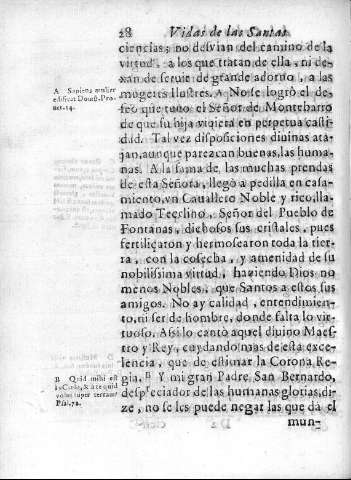 28 Vidas de las Santas
ciencias; no desvian del camino de la
virtud, a los que tratan de ella, ni de-
xan de seruir de grande adorno, a las
mugeres Ilustres. A No se logrò el de-
seo que tuuo el Señor de Montebarro
de que su hija viuiera en perpetua casti
dad. Tal vez disposiciones diuinas ata-
jan, aunque parezcan buenas, las huma-
nas. A la fama de, las muchas prendas
de esta Señora, llegò a pedilla en casa-
miento, vn Cauallero Noble y rico, lla-
mado Tecelino, Señor del Pueblo de
Fontanas, dichosos sus cristales, pues
fertilizaron y hermosearon toda la tier-
ra, con la cosecha, y amenidad de su
nobilissima virtud, haziendo Dios no
menos Nobles, que Santos a estos sus
amigos. No ay calidad, entendimien-
to, ni ser de hombre, donde falta lo vir-
tuoso. Assi lo cantò aquel diuino Maes-
tro y Rey, cuydando mas de esta exce-
lencia, que de estimar la Corona Re-
gia. B Y mi gran Padre San Bernardo,
despreciador de las humanas glorias, di-
ze, no se les puede negar las que dà el
mun-
A Sapiens mulier
ædificat Domū. Pro
uer. 14.
B Quid mihi est
in Cœlo, & à te quid
volui super terram
Psal. 72.